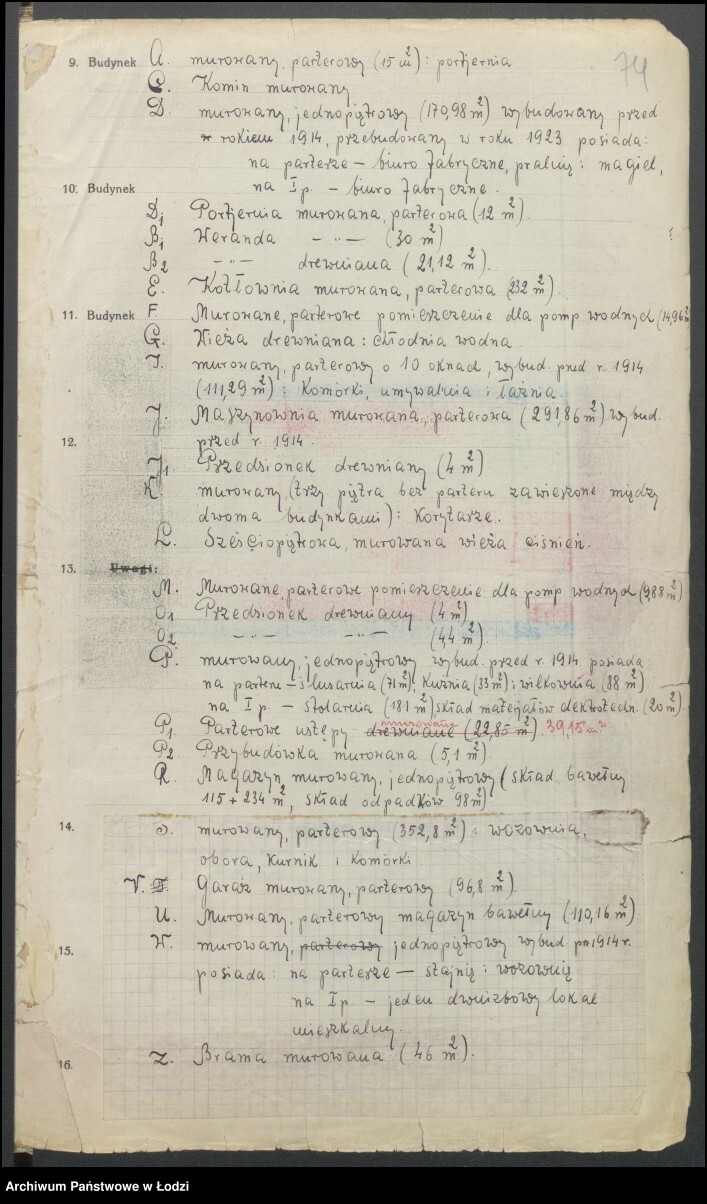 74
9. Budynek A. murowany, parterowy (15 m²): portjernia
C. Komin murowany
D. murowany, jednopiątrowy (170,98 m²) wybudowany przed
rokiem 1914, przebudowany w roku 1923 posiada:
na parterze – biuro fabryczne, pralnię i magiel,
10. Budynek na I p. – biuro fabryczne.
D₁ Portjernia murowana, parterowa (12 m²).
B₁ Weranda – „ – (30 m²)
B₂ – „ – drewniana (21,12 m²).
E. Kotłownia murowana, parterowa (232 m²).
11. Budynek F. Murowane, parterowe pomieszczenie dla pomp wodnych (14,96 m²
G. Wieża drewniana: chłodnia wodna.
I. murowany, parterowy o 10 oknach, wybud. przed r. 1914
(111,29 m²): Komórki, umywalnia i łaźnia.
J. Maszynownia murowana, parterowa (291,86 m²) wybud.
12. przed r. 1914.
J₁ Przedsionek drewniany (4 m²)
K. murowany, (trzy piętra bez parteru zawieszone między
dwoma budynkami): Korytarze.
L. Sześciopiątrowa, murowana wieża ciśnień.
13. Uwagi:
M. Murowane, parterowe pomieszczenie dla pomp wodnych (9,88 m²)
O₁ Przedsionek drewniany (4 m²)
O₂ – „ – – „ – (4,4 m²)
P. murowany, jednopiątrowy wybud. przed r. 1914 posiada
na parterze – ślusarnia (71 m²), Kuźnia (33 m²) i wilkownia (88 m²)
na I p. – stolarnia (181 m²) skład materjałów elektrotechn. (20 m²).
P₁ Parterowe ustępy drewniane murowane (22,85 m²). 39,15 m²
P₂ Przybudówka murowana (5,1 m²).
R. Magazyn murowany, jednopiątrowy (skład bawełny
115 + 234 m², skład odpadków 98 m²)
14. S. murowany, parterowy (352,8 m²): wozownia,
obora, Kurnik i Komórki.
V. T. Garaż murowany, parterowy (96,8 m²).
U. Murowany, parterowy magazyn bawełny (110,16 m²)
15. W. murowany, parterowy jednopiątrowy wybud. prz 1914 r.
posiada: na parterze – stajnię i wozownię
na I p. – jeden dwuizbowy lokal
mieszkalny.
16. Z. Brama murowana (46 m²).
Archiwum Państwowe w Łodzi